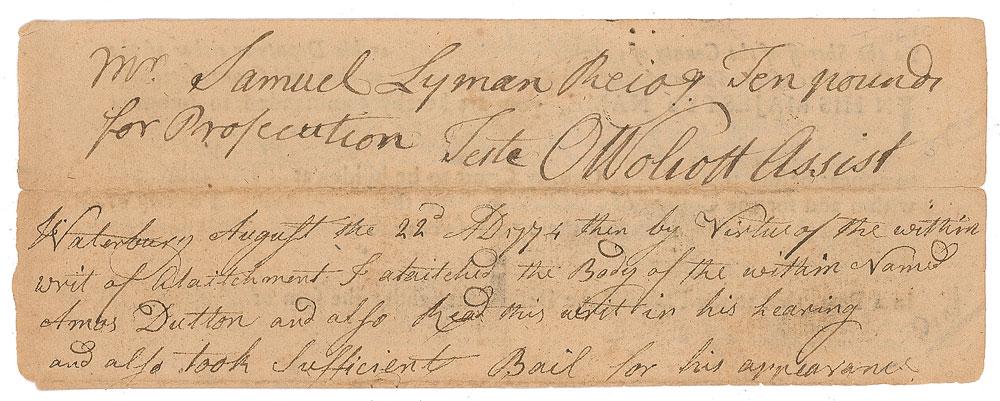 Mr. Samuel Lyman Recog Ten pounds
for Prosecution Teste O Wolcott Assist
Waterbury August the 22d AD 1774 then by Virtue of the within
writ of Attaitchment I attaitched the Body of the within Named
Amos Dutton and also Read this writ in his hearing
and also took Sufficient Bail for his appearance